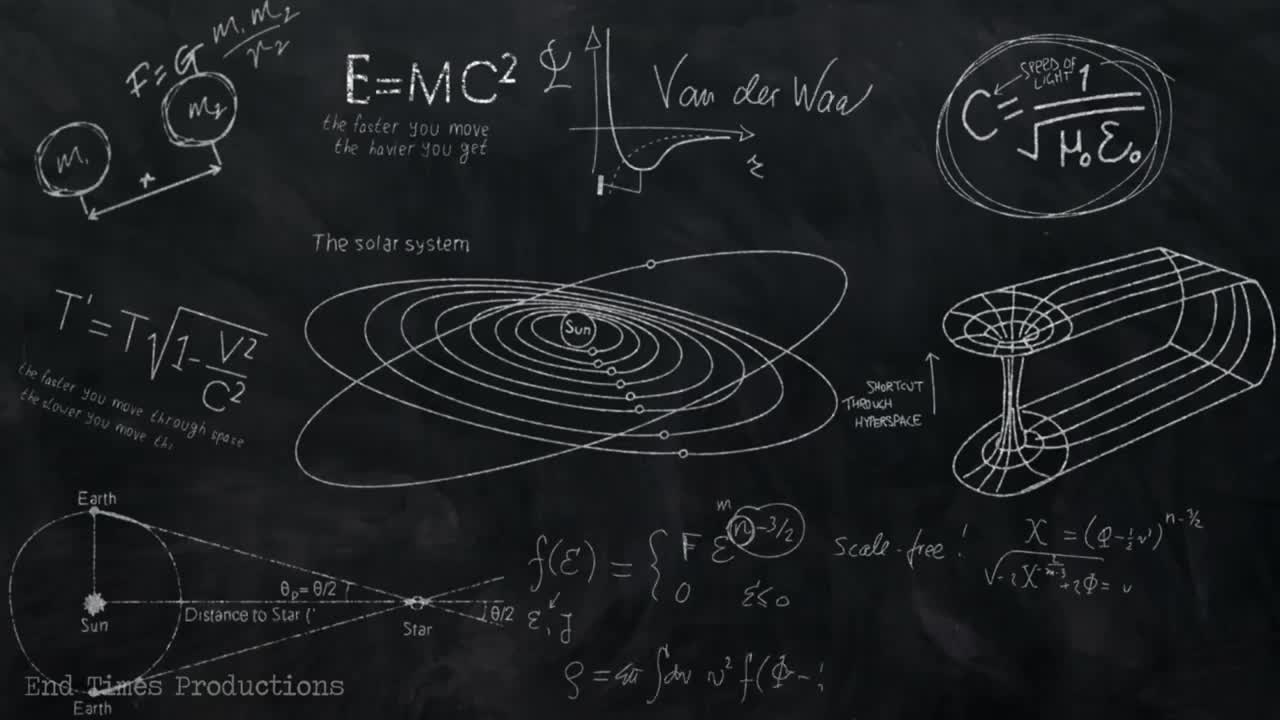 F=G m₁m₂/r²
m₁
m₂
r
E=MC²
the faster you move
the havier you get
Van der Waa
r
SPEED OF
LIGHT
C = 1/√μ₀ε₀
The solar system
Sun
T' = T√1-V²/C²
the faster you move through space
the slower you move th
SHORTCUT
THROUGH
HYPERSPACE
Earth
Sun
θp = θ/2
Distance to Star (
Star
θ/2
Earth
f(ε) = { F ε n-3/2
m
0 ε≤0
ε, J
Scale-free!
ρ = 4π ∫dv v² f(Φ -
End Times Productions